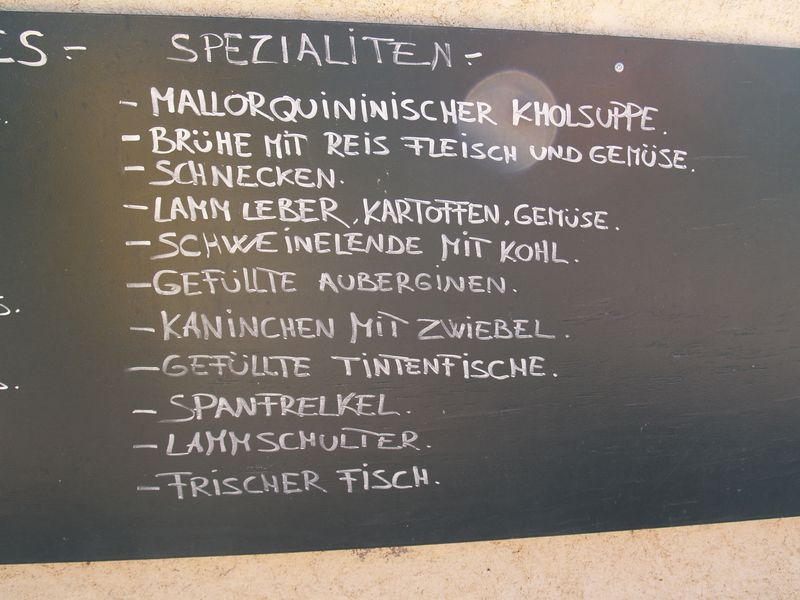 ES -
SPEZIALITEN -
- MALLORQUININISCHER KHOLSUPPE.
- BRÜHE MIT REIS FLEISCH UND GEMÜSE.
- SCHNECKEN.
- LAMM LEBER, KARTOFFEN, GEMÜSE.
- SCHWEINELENDE MIT KOHL.
- GEFÜLLTE AUBERGINEN.
- KANINCHEN MIT ZWIEBEL.
- GEFÜLLTE TINTENFISCHE.
S.
- SPANFRELKEL.
S.
- LAMMSCHULTER.
- FRISCHER FISCH.